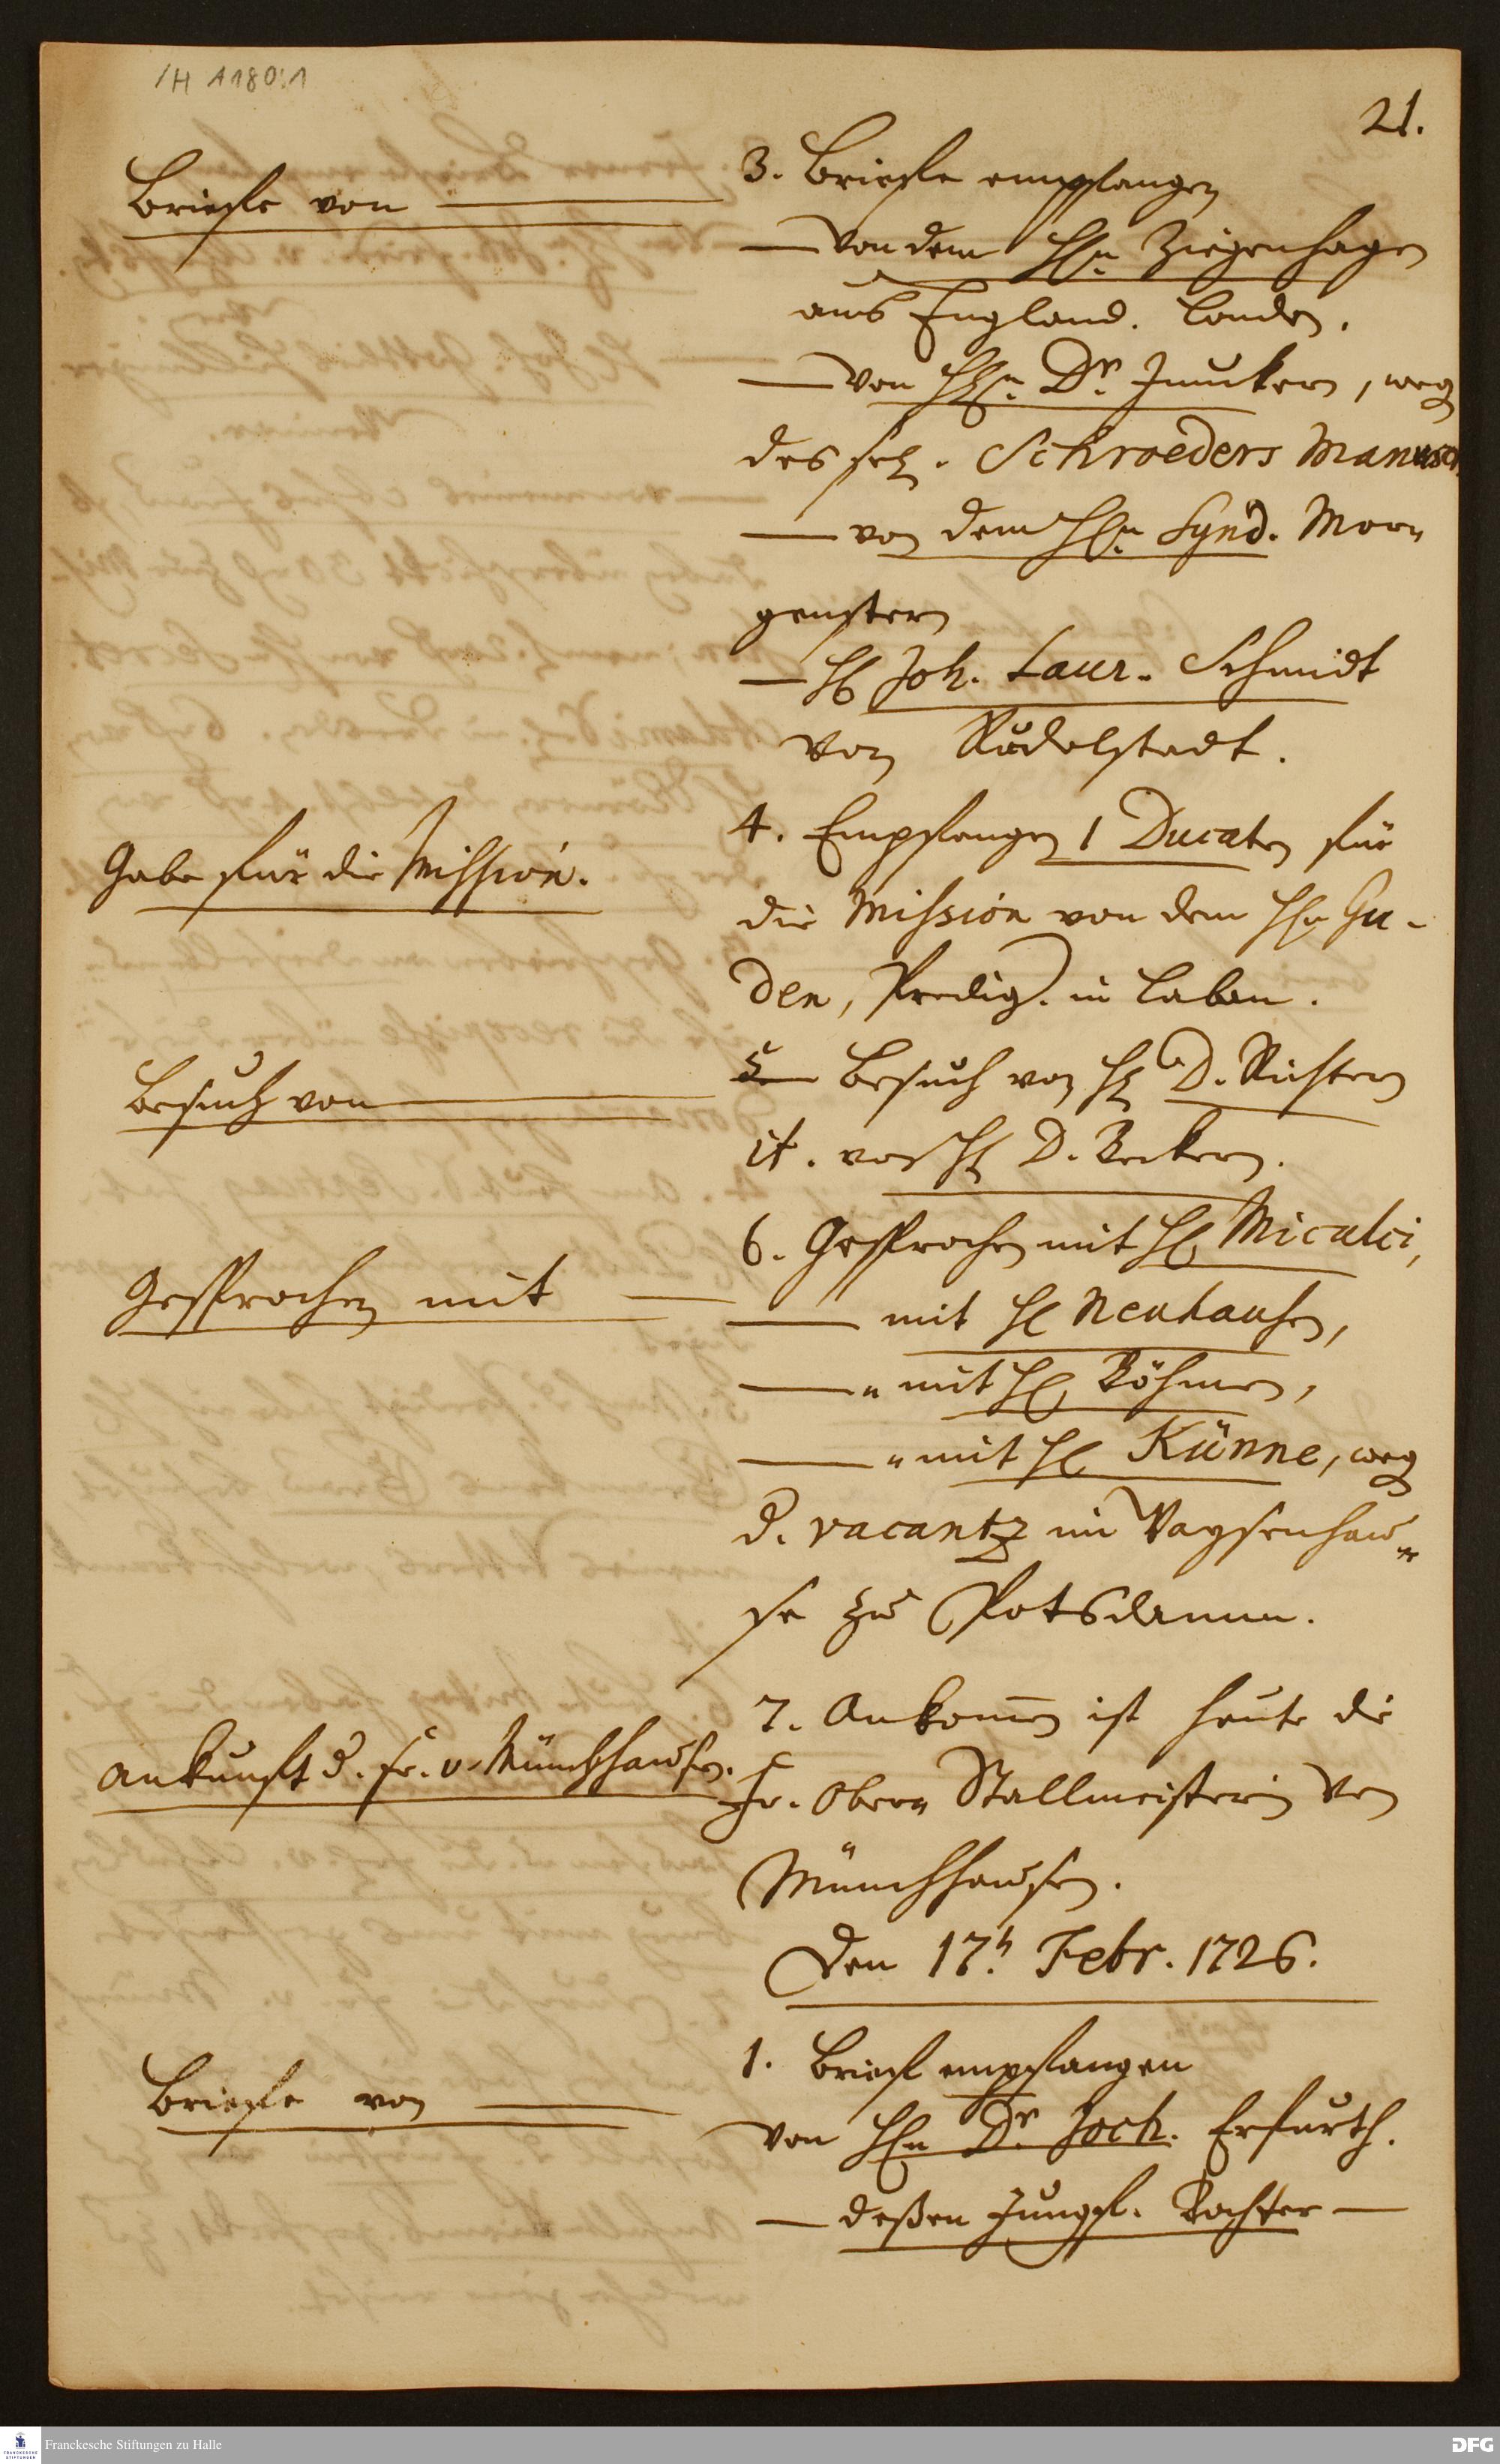 /H A180:1
21.
Briefe von
3. Briefe empfangen
von dem Hn. Ziegenhagen
aus England. Londen.
von Hn. Dr. Junckern, weg
des sel. Schroeders Manuscr
von dem Hn. Synd. Mor-
genstern
H Joh. Laur. Schmidt
von Rudolstadt.
Gabe für die Mission.
4. Empfangen 1 Ducaten für
die Mission von dem Hn Gu-
den, Predig. in Laben.
Besuch von
5. Besuch von H D. Richtern
it. von H D. Beckern.
Gesprochen mit
6. Gesprochen mit H Micalci,
mit H Neuhausen,
mit H Böhmen,
mit H Künne, weg
d. vacantz im Waysenhau-
se zu Potsdamm.
Ankunft d. Fr. v. Münchhausen.
7. Ankomen ist heute die
Fr. Ober- Stallmeisterin von
Münchhausen.
Den 17. Febr. 1726.
Briefe von
1. Brief empfangen
von Hn Dr. Joch. Erfurth.
deßen Jungf. Tochter
Franckesche Stiftungen zu Halle
DFG